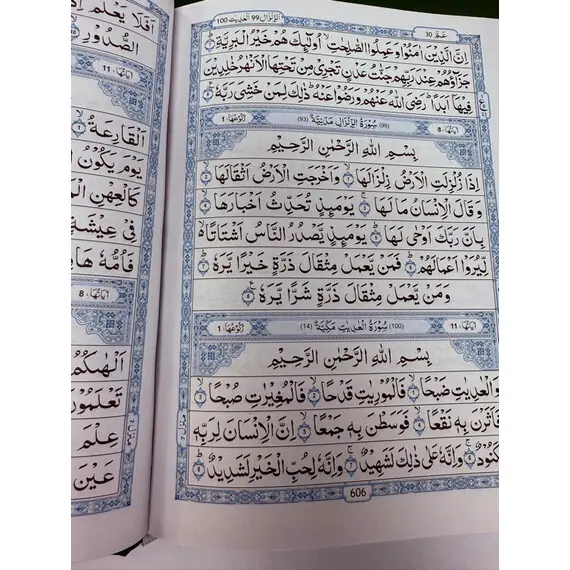 عَمَّ 30
الزلزال 99 العديت 100
اِنَّ الَّذِيْنَ اٰمَنُوْا وَعَمِلُوا الصّٰلِحٰتِ ۙ اُولٰٓئِكَ هُمْ خَيْرُ الْبَرِيَّةِ ۞ؕ
جَزَآؤُهُمْ عِنْدَ رَبِّهِمْ جَنّٰتُ عَدْنٍ تَجْرِيْ مِنْ تَحْتِهَا الْاَنْهٰرُ خٰلِدِيْنَ
فِيْهَآ اَبَدًا ؕ رَضِيَ اللّٰهُ عَنْهُمْ وَرَضُوْا عَنْهُ ؕ ذٰلِكَ لِمَنْ خَشِيَ رَبَّهٗ ۞
اٰيَاتُهَا ٨ (99) سُوْرَةُ الزِّلْزَالِ مَدَنِيَّةٌ (93) رُكُوْعُهَا ١
بِسْمِ اللّٰهِ الرَّحْمٰنِ الرَّحِيْمِ
اِذَا زُلْزِلَتِ الْاَرْضُ زِلْزَالَهَا ۞ۙ وَاَخْرَجَتِ الْاَرْضُ اَثْقَالَهَا ۞ۙ
وَقَالَ الْاِنْسَانُ مَا لَهَا ۞ۚ يَوْمَئِذٍ تُحَدِّثُ اَخْبَارَهَا ۞ۙ
بِاَنَّ رَبَّكَ اَوْحٰى لَهَا ۞ؕ يَوْمَئِذٍ يَّصْدُرُ النَّاسُ اَشْتَاتًا ۙ
لِّيُرَوْا اَعْمَالَهُمْ ۞ؕ فَمَنْ يَّعْمَلْ مِثْقَالَ ذَرَّةٍ خَيْرًا يَّرَهٗ ۞ؕ
وَمَنْ يَّعْمَلْ مِثْقَالَ ذَرَّةٍ شَرًّا يَّرَهٗ ۞
اٰيَاتُهَا ١١ (100) سُوْرَةُ الْعٰدِيٰتِ مَكِّيَّةٌ (14) رُكُوْعُهَا ١
بِسْمِ اللّٰهِ الرَّحْمٰنِ الرَّحِيْمِ
وَالْعٰدِيٰتِ ضَبْحًا ۞ۙ فَالْمُوْرِيٰتِ قَدْحًا ۞ۙ فَالْمُغِيْرٰتِ صُبْحًا ۞ۙ
فَاَثَرْنَ بِهٖ نَقْعًا ۞ۙ فَوَسَطْنَ بِهٖ جَمْعًا ۞ۙ اِنَّ الْاِنْسَانَ لِرَبِّهٖ
لَكَنُوْدٌ ۞ۚ وَاِنَّهٗ عَلٰى ذٰلِكَ لَشَهِيْدٌ ۞ۚ وَاِنَّهٗ لِحُبِّ الْخَيْرِ لَشَدِيْدٌ ۞ؕ
606
اَفَلَا يَعْلَمُ اِذَا
الصُّدُوْرِ
اٰيَاتُهَا ١١
اَلْقَارِعَةُ
يَوْمَ يَكُوْنُ
كَالْعِهْنِ
فِيْ عِيْشَةٍ
فَاُمُّهٗ
اٰيَاتُهَا ٨
اَلْهٰىكُمُ
تَعْلَمُوْنَ
عِلْمَ
عَيْنَ